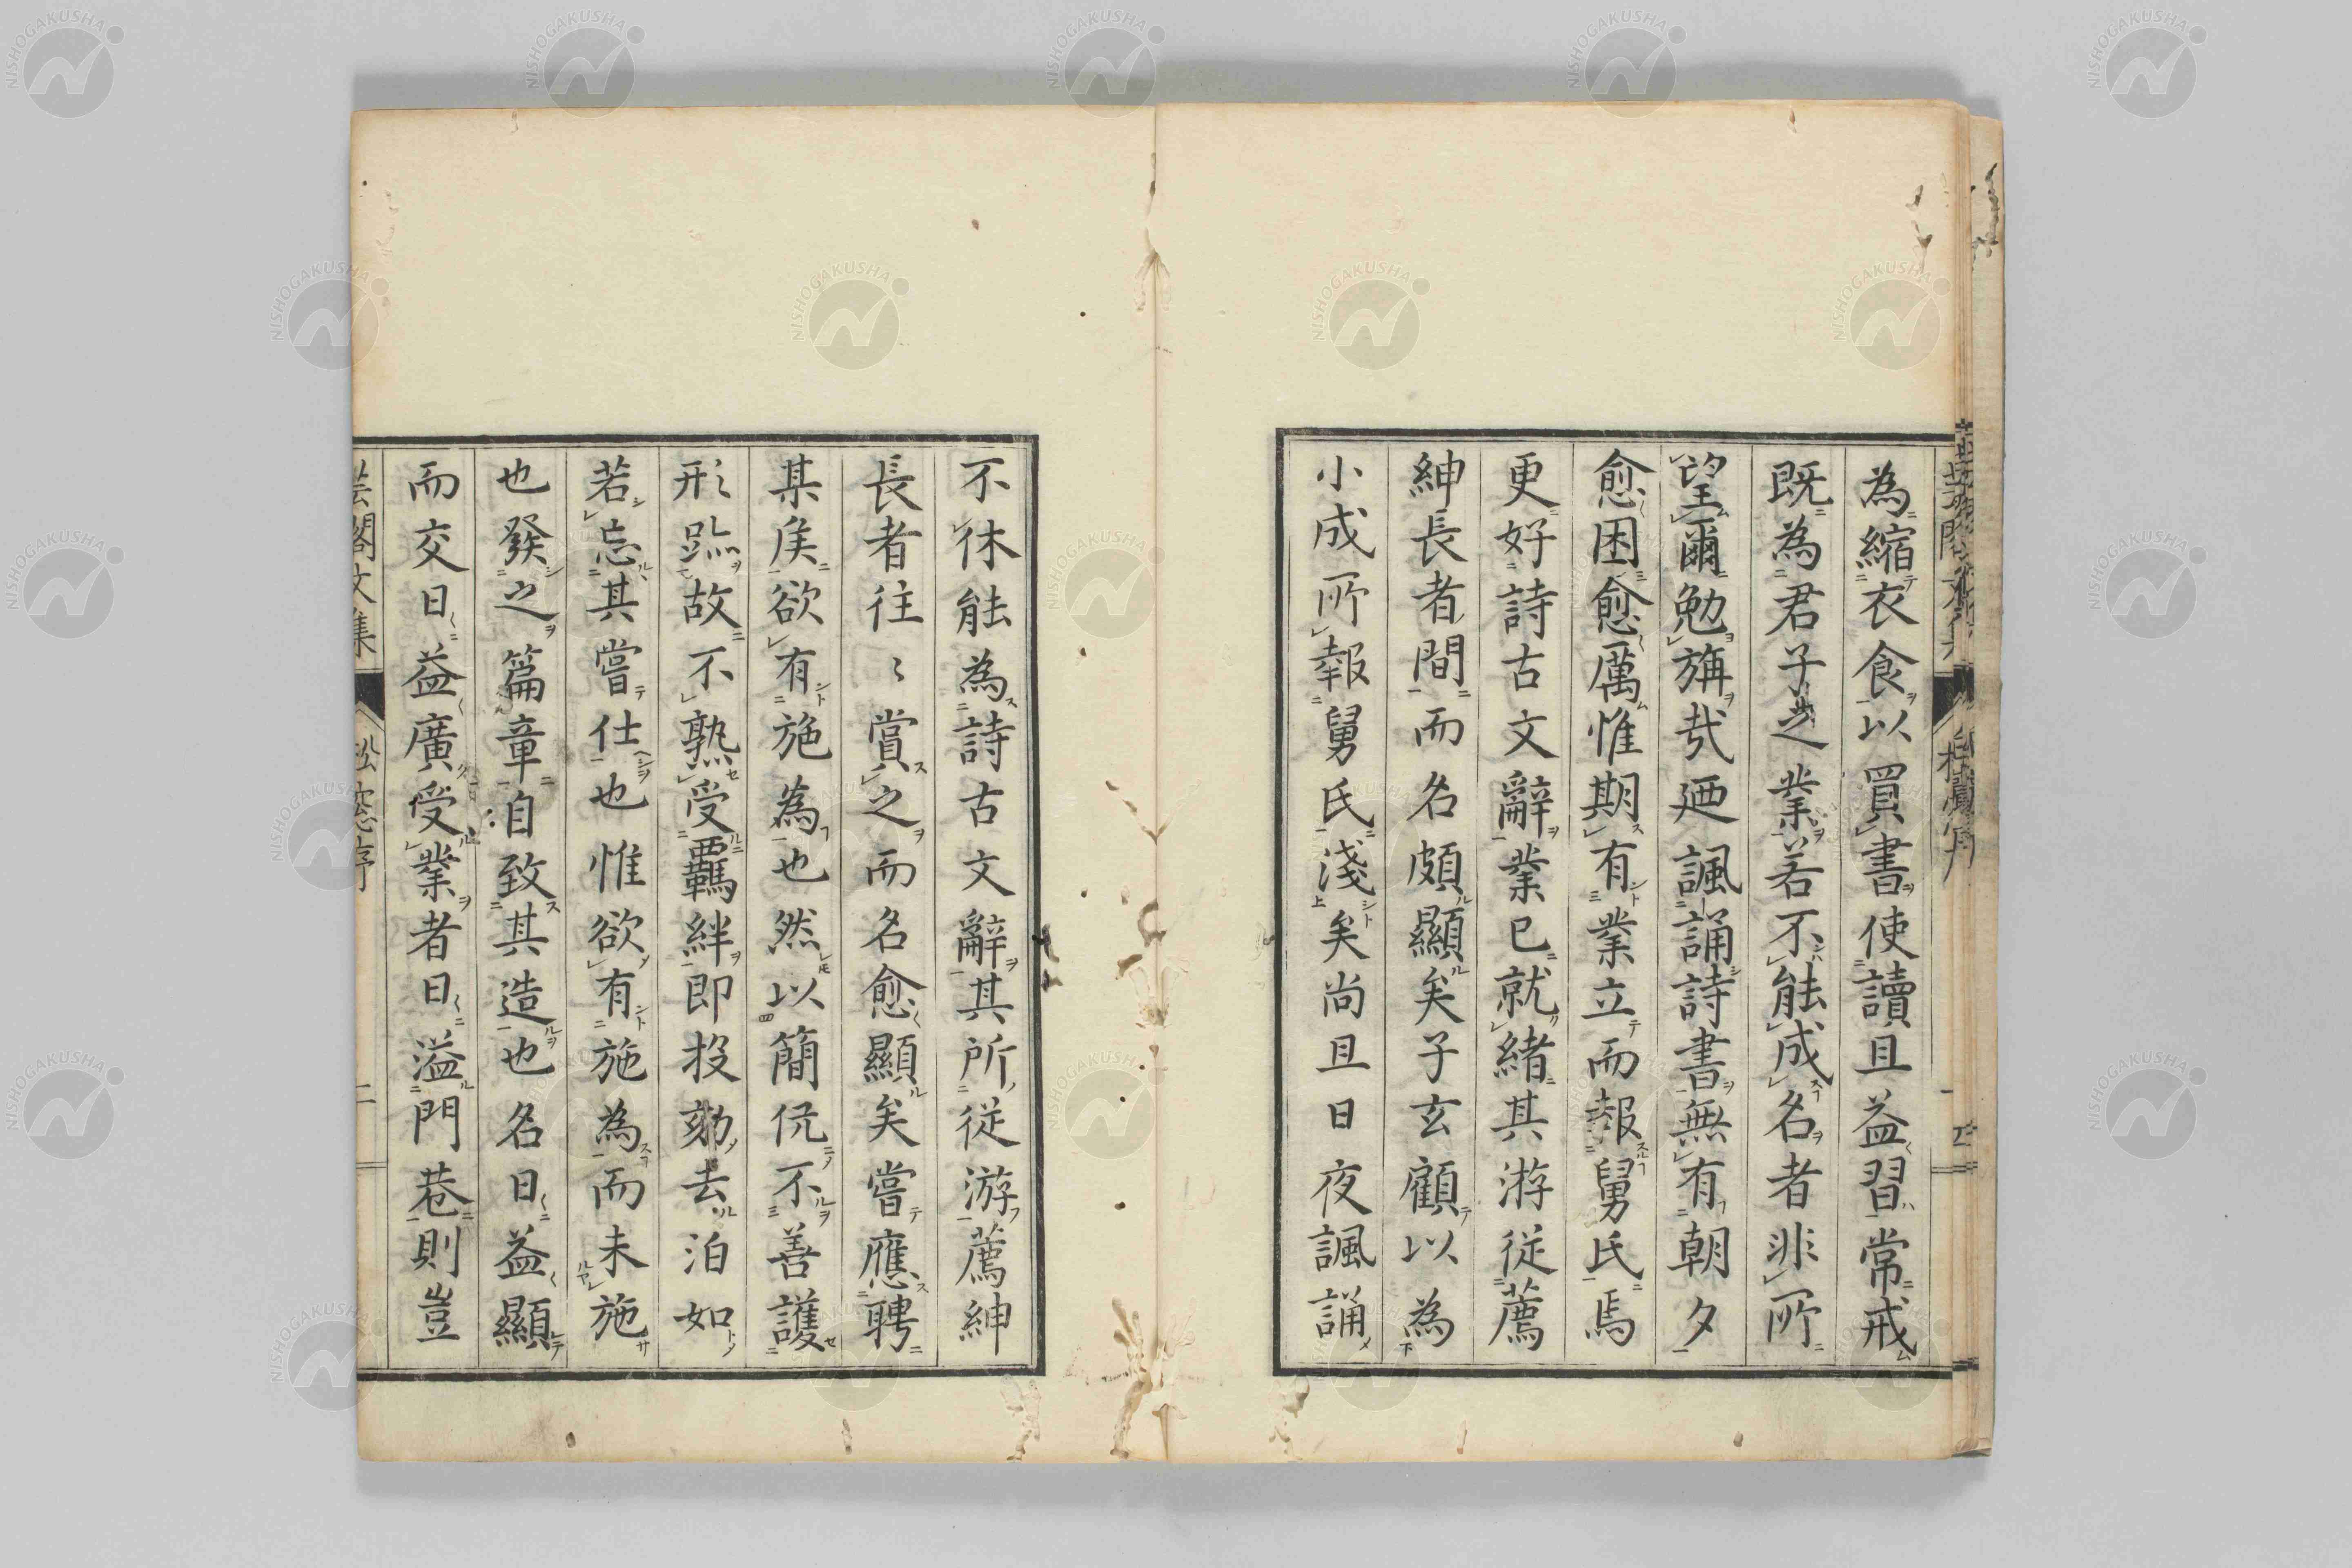 為縮衣食以買書使讀且益習常戒
既為君子之業若不能成名者非所
望爾勉旃哉廼諷誦詩書無有朝夕
愈困愈厲惟期有業立而報舅氏焉
更好詩古文辭業已就緒其游従薦
紳長者間而名頗顯矣子玄顧以為
小成所報舅氏淺矣尚且日夜諷誦
不休能為詩古文辭其所従游薦紳
長者往〻賞之而名愈顯矣嘗應聘
某矦欲有施為也然以簡伉不善護
形跡故不熟受羈絆即投劾去泊如
若忘其嘗仕也惟欲有施為而未施
也發之篇章自致其造也名日益顯
而交日益廣受業者日溢門巷則豈
芸閣文集 松窓序 二
NISHOGAKUSHA